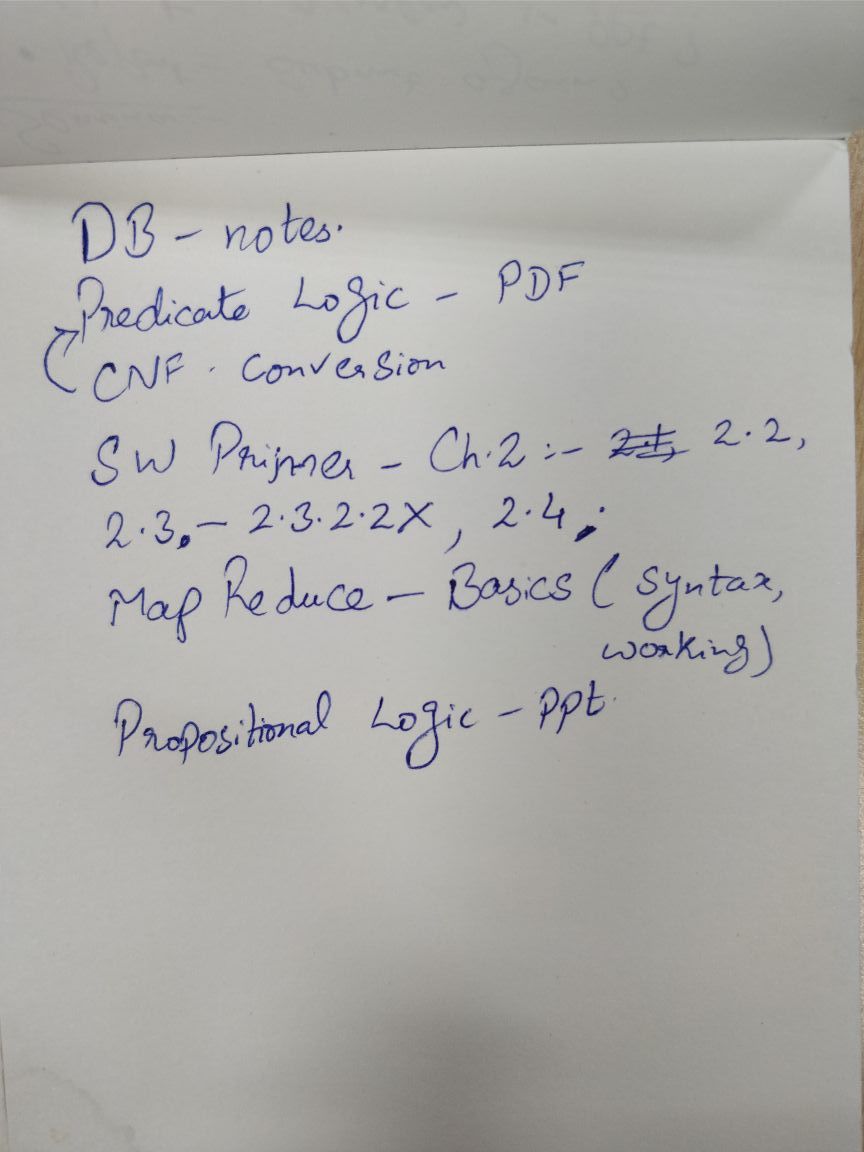 DB - notes.
Predicate Logic - PDF
CNF. Conversion
SW Primer - Ch.2 :- 2.2,
2.3. - 2.3.2.2X, 2.4;
Map Reduce - Basics (syntax,
working)
Propositional Logic - PPt.